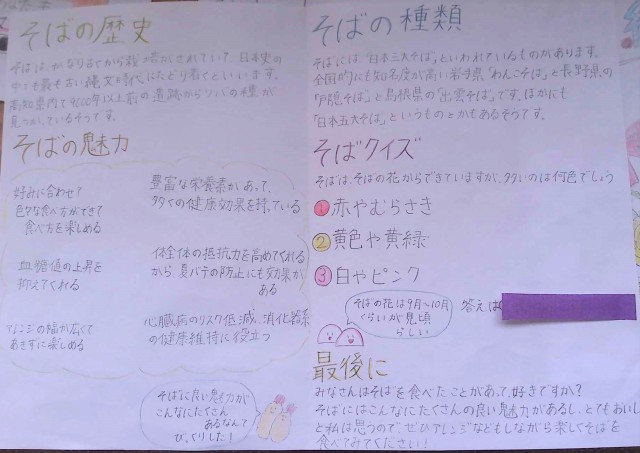 そばの歴史
そばは、かなり古くから栽培がされていて、日本史の
中でも最も古い縄文時代にたどり着くといいます。
高知県内で9000年以上前の遺跡からソバの種が
見つかっているそうです。
そばの魅力
好みに合わせて
色々な食べ方ができて
食べ方を楽しめる
豊富な栄養素があって、
多くの健康効果を持っている
血糖値の上昇を
抑えてくれる
体全体の抵抗力を高めてくれる
から、夏バテの防止にも効果が
ある
アレンジの幅が広くて
あきずに楽しめる
心臓病のリスク低減、消化器系
の健康維持に役立つ
そばに良い魅力が
こんなにたくさん
あるなんて
びっくりした!
そばの種類
そばには「日本三大そば」といわれているものがあります。
全国的にも知名度が高い岩手県「わんこそば」と長野県の
「戸隠そば」と島根県の「出雲そば」です。ほかにも
「日本五大そば」というものとかもあるそうです。
そばクイズ
そばは、そばの花からできていますが、多いのは何色でしょう
①赤やむらさき
②黄色や黄緑
③白やピンク
そばの花は9月〜10月
くらいが見頃
らしい
答えは
最後に
みなさんはそばを食べたことがあって、好きですか?
そばにはこんなにたくさんの良い魅力があるし、とてもおいしい
と私は思うので、ぜひアレンジなどもしながら楽しくそばを
食べてみてください!